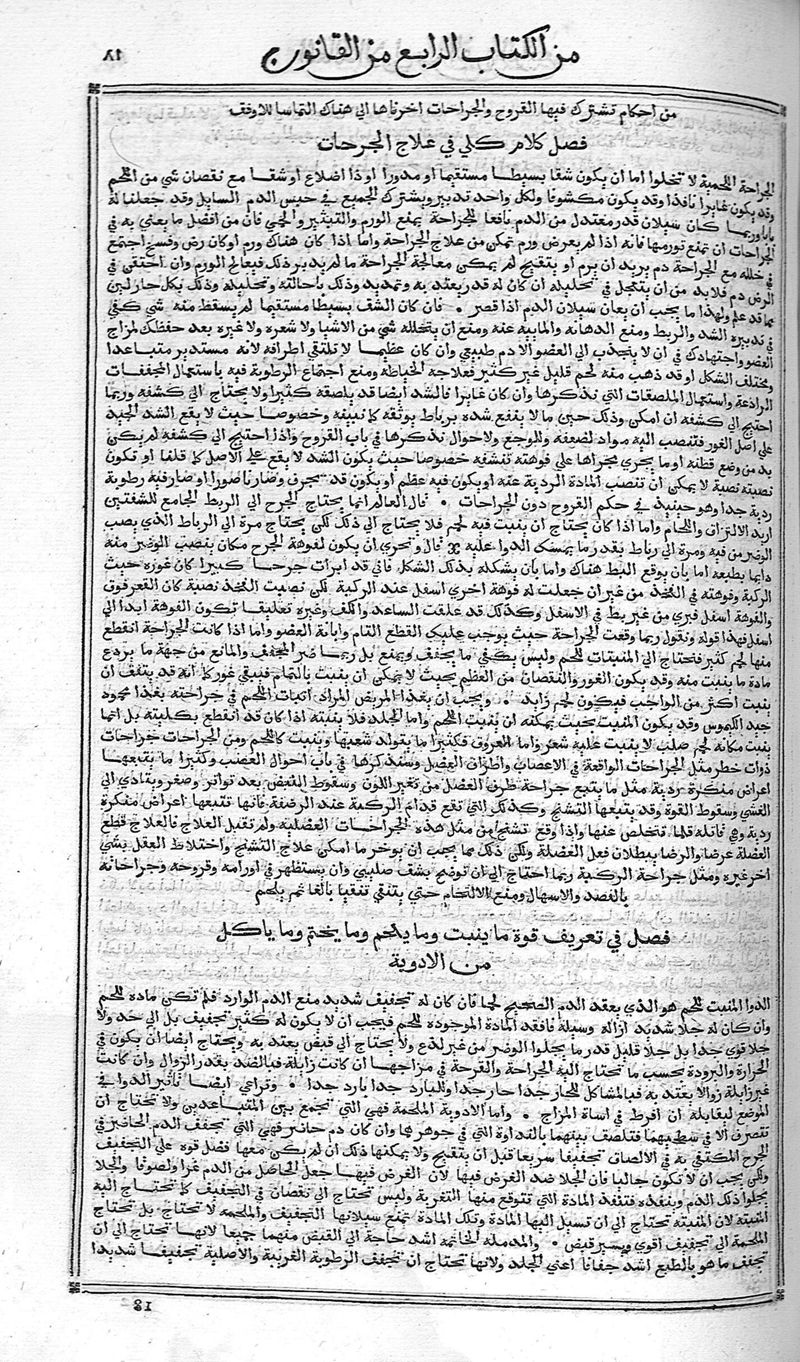 من الكتاب الرابع من القانون
٨١
من احكام تشترك فيها القروح والجراحات اخرناها الى هناك التماسا للاوفق
فصل كلام كلي في علاج الجرحات
الجراحة اللحمية لا تخلوا اما ان يكون شقا بسيطا مستقيما او مدورا او ذا اضلاع او شقا مع نقصان شي من اللحم
وقد يكون غايرا نافذا وقد يكون مكشوفا ولكل واحد تدبير ويشترك الجميع في حبس الدم السايل وقد جعلنا له
بابا وربما كان سيلان قدر معتدل من الدم نافعا للجراحة يمنع الورم والتبثير والحمى فان من افضل ما يعنى به في
الجراحات ان تمنع تورمها فانه اذا لم يعرض ورم تمكن من علاج الجراحة واما اذا كان هناك ورم او كان رض وفسخ اجتمع
في خلله مع الجراحة دم يريد ان يرم او يتقيح لم يمكن معالجة الجراحة ما لم يدبر ذلك فيعالج الورم وان احتقن في
الرض دم فلابد من ان يتعجل في تحليله ان كان له قدر يعتد به وتمديد وذلك باحالته وتحليله وذلك بكل حار لين
مما قد علم ولهذا ما يجب ان يعان سيلان الدم اذا قصر ٠ فان كان الشق بسيطا مستقيما لم يسقط منه شي كفى
في تدبيره الشد والربط ومنع الدهانة والمايية عنه ومنع ان يتخلله شي من الاشيا ولا شعره ولا غيره بعد حفظك لمزاج
العضو واجتهادك في ان لا ينجذب الى العضو الا دم طبيعي وان كان عظيما لا تلتقي اطرافه لانه مستدير متباعدا
ومختلف الشكل او قد ذهب منه لحم قليل غير كثير فعلاجه الخياطة ومنع اجتماع الرطوبة فيه باستعمال المجففات
الرادعة واستعمال الملصقات التي نذكرها وان كان غايرا فالشد ايضا قد يلصقه كثيرا ولا يحتاج الى كشفه وربما
احتيج الى كشفه ان امكن وذلك حين ما لا ينفع شده برباط يوثقه كما ينبغي وخصوصا حيث لا يقع الشد الجيد
على اصل الغور فتنصب اليه مواد لضعفه وللوجع ولاحوال نذكرها في باب القروح واذا احتيج الى كشفه لم يكن
بد من وضع قطنه او ما يجري مجراها على فوهته تنشفه خصوصا حيث يكون الشد لا يقع على الاصل كما قلنا او تكون
نصبته نصبة لا يمكن ان تنصب المادة الردية عنه او يكون فيه عظم او يكون قد تجوف وصار ناصورا او صار فيه رطوبة
ردية جدا وهو حينيذ في حكم القروح دون الجراحات ٠ قال العالم انما يحتاج الجرح الى الربط الجامع للشفتين
اريد الالتزاق والالتحام واما اذا كان يحتاج ان ينبت فيه لحم فلا يحتاج الى ذلك لكن يحتاج مرة الى الرباط الذي يصب
الوضر من فيه ومرة الى رباط بقدر ما يمسك الدوا عليه قال وتحري ان يكون لفوهة الجرح مكان ينصب الوضر منه
دايما بطبعه اما بان يوقع البط هناك واما بان يشكله بذلك الشكل فاني قد ابرات جرحا كبيرا كان غوره حيث
الركبة وفوهته في الفخذ من غير ان جعلت له فوهة اخرى اسفل عند الركبة لكن نصبت الفخذ نصبة كان القعر فوق
والفوهة اسفل فبري من غير بط في الاسفل وكذلك قد علقت الساعد والكف وغيره تعليقا تكون الفوهة ابدا الى
اسفل فهذا قوله ونقول ربما وقعت الجراحة حيث يوجب عليك القطع التام وابانة العضو واما اذا كانت الجراحة انقطع
منها لحم كثير فتحتاج الى المنبتات للحم وليس يكفي ما يجفف ويمنع بل ربما ضر المجفف والمانع من جهة ما يردع
مادة ما ينبت منه وقد يكون الغور والنقصان من العظيم بحيث لا يمكن ان ينبت بالتمام فيبقى غور كما انه قد يتفق ان
ينبت اكثر من الواجب فيكون لحم زايد ٠ ويجب ان يغذا المريض المراد انبات اللحم في جراحته بغذا محمود
جيد الكيموس وقد يكون المنبت بحيث يمكنه ان ينبت اللحم واما الجلد فلا ينبته اذا كان قد انقطع بكليته بل انما
ينبت مكانه لحم صلب لا ينبت عليه شعر واما العروق فكثيرا ما يتولد شعبها وينبت كاللحم ومن الجراحات جراحات
ذوات خطر مثل الجراحات الواقعة في الاعصاب واطراف العضل وسنذكرها في باب احوال العصب وكثيرا ما يتبعها
اعراض منكرة ردية مثل ما يتبع جراحة طرف العضل من تغير اللون وسقوط النبض بعد تواتر وصغر ويتادى الى
الغشي وسقوط القوة وقد يتبعها التشنج وكذلك التي تقع قدام الركبة عند الرضفة فانها تتبعها اعراض منكرة
ردية وهي قاتله قلما يتخلص عنها واذا وقع تشنج من مثل هذه الجراحات العضلية ولم تقبل العلاج فالعلاج قطع
العضلة عرضا والرضا ببطلان فعل العضلة ولكن ذلك مما يجب ان يوخر ما امكن علاج التشنج واختلاط العقل بشي
اخر غيره ومثل جراحة الركبة ربما احتاج الى ان توضع بشق صليبي وان يستظهر في اورامه وقروحه وجراحاته
بالفصد والاسهال ومنع الالتحام حتى يتنقى تنقيا بالغا ثم يلحم
فصل في تعريف قوة ما ينبت وما يلحم وما يختم وما ياكل
من الادوية
الدوا المنبت للحم هو الذي يعقد الدم الصحيح لحما فان كان له تجفيف شديد منع الدم الوارد فلم تكن ماده للحم
وان كان له جلا شديد ازاله وسيله فافقد المادة الموجوده للحم فيجب ان لا يكون له كثير تجفيف بل الى حد ولا
جلا قوي جدا بل جلا قليل قدر ما يجلوا الوضر من غير لذع ولا يحتاج الى قبض يعتد به ويحتاج ايضا ان يكون في
الحرارة والبرودة بحسب ما تحتاج اليه الجراحة والقرحة في مزاجها ان كانت زايلة فبالضد بقدر الزوال وان كانت
غير زايلة زوالا يعتد به فبالمشاكل للحار جدا حار جدا وللبارد جدا بارد جدا ٠ وتراعي ايضا تاثير الدوا في
الموضع ليقابله ان افرط في اساة المزاج ٠ واما الادوية الملحمة فهي التي تجمع بين المتباعدين ولا تحتاج ان
تتصرف الا في سطحيهما فتلصق بينهما بالنداوة التي في جوهرها وان كان دم حاضر فهي التي تجفف الدم الحاضر في
الجرح المكتفي به في الالصاق تجفيفا سريعا قبل ان يتقيح ولا يمكنها ذلك ان لم يكن معها فضل قوه على التجفيف
ولكن يجب ان لا تكون جاليا فان الجلا ضد الغرض فيها لان الغرض فيها جعل الحاصل من الدم غرا ولصوقا والجلا
يجلوا ذلك الدم وينفده فتنفد المادة التي تتوقع منها التغرية وليس تحتاج الى نقصان في التجفيف كما تحتاج اليه
المنبته لان المنبته تحتاج الى ان تسيل اليها المادة وتلك المادة تمنع سيلانها التجفيف والملحمة لا تحتاج بل تحتاج
الملحمة الى تجفيف اقوى ويسير قبض ٠ والمدمله الخاتمه اشد حاجة الى القبض منهما جميعا لانها تحتاج الى ان
تجفف ما هو بالطبع اشد جفافا اعني الجلد ولانها تحتاج ان تجفف الرطوبة الغريبة والاصلية تجفيفا شديدا
18